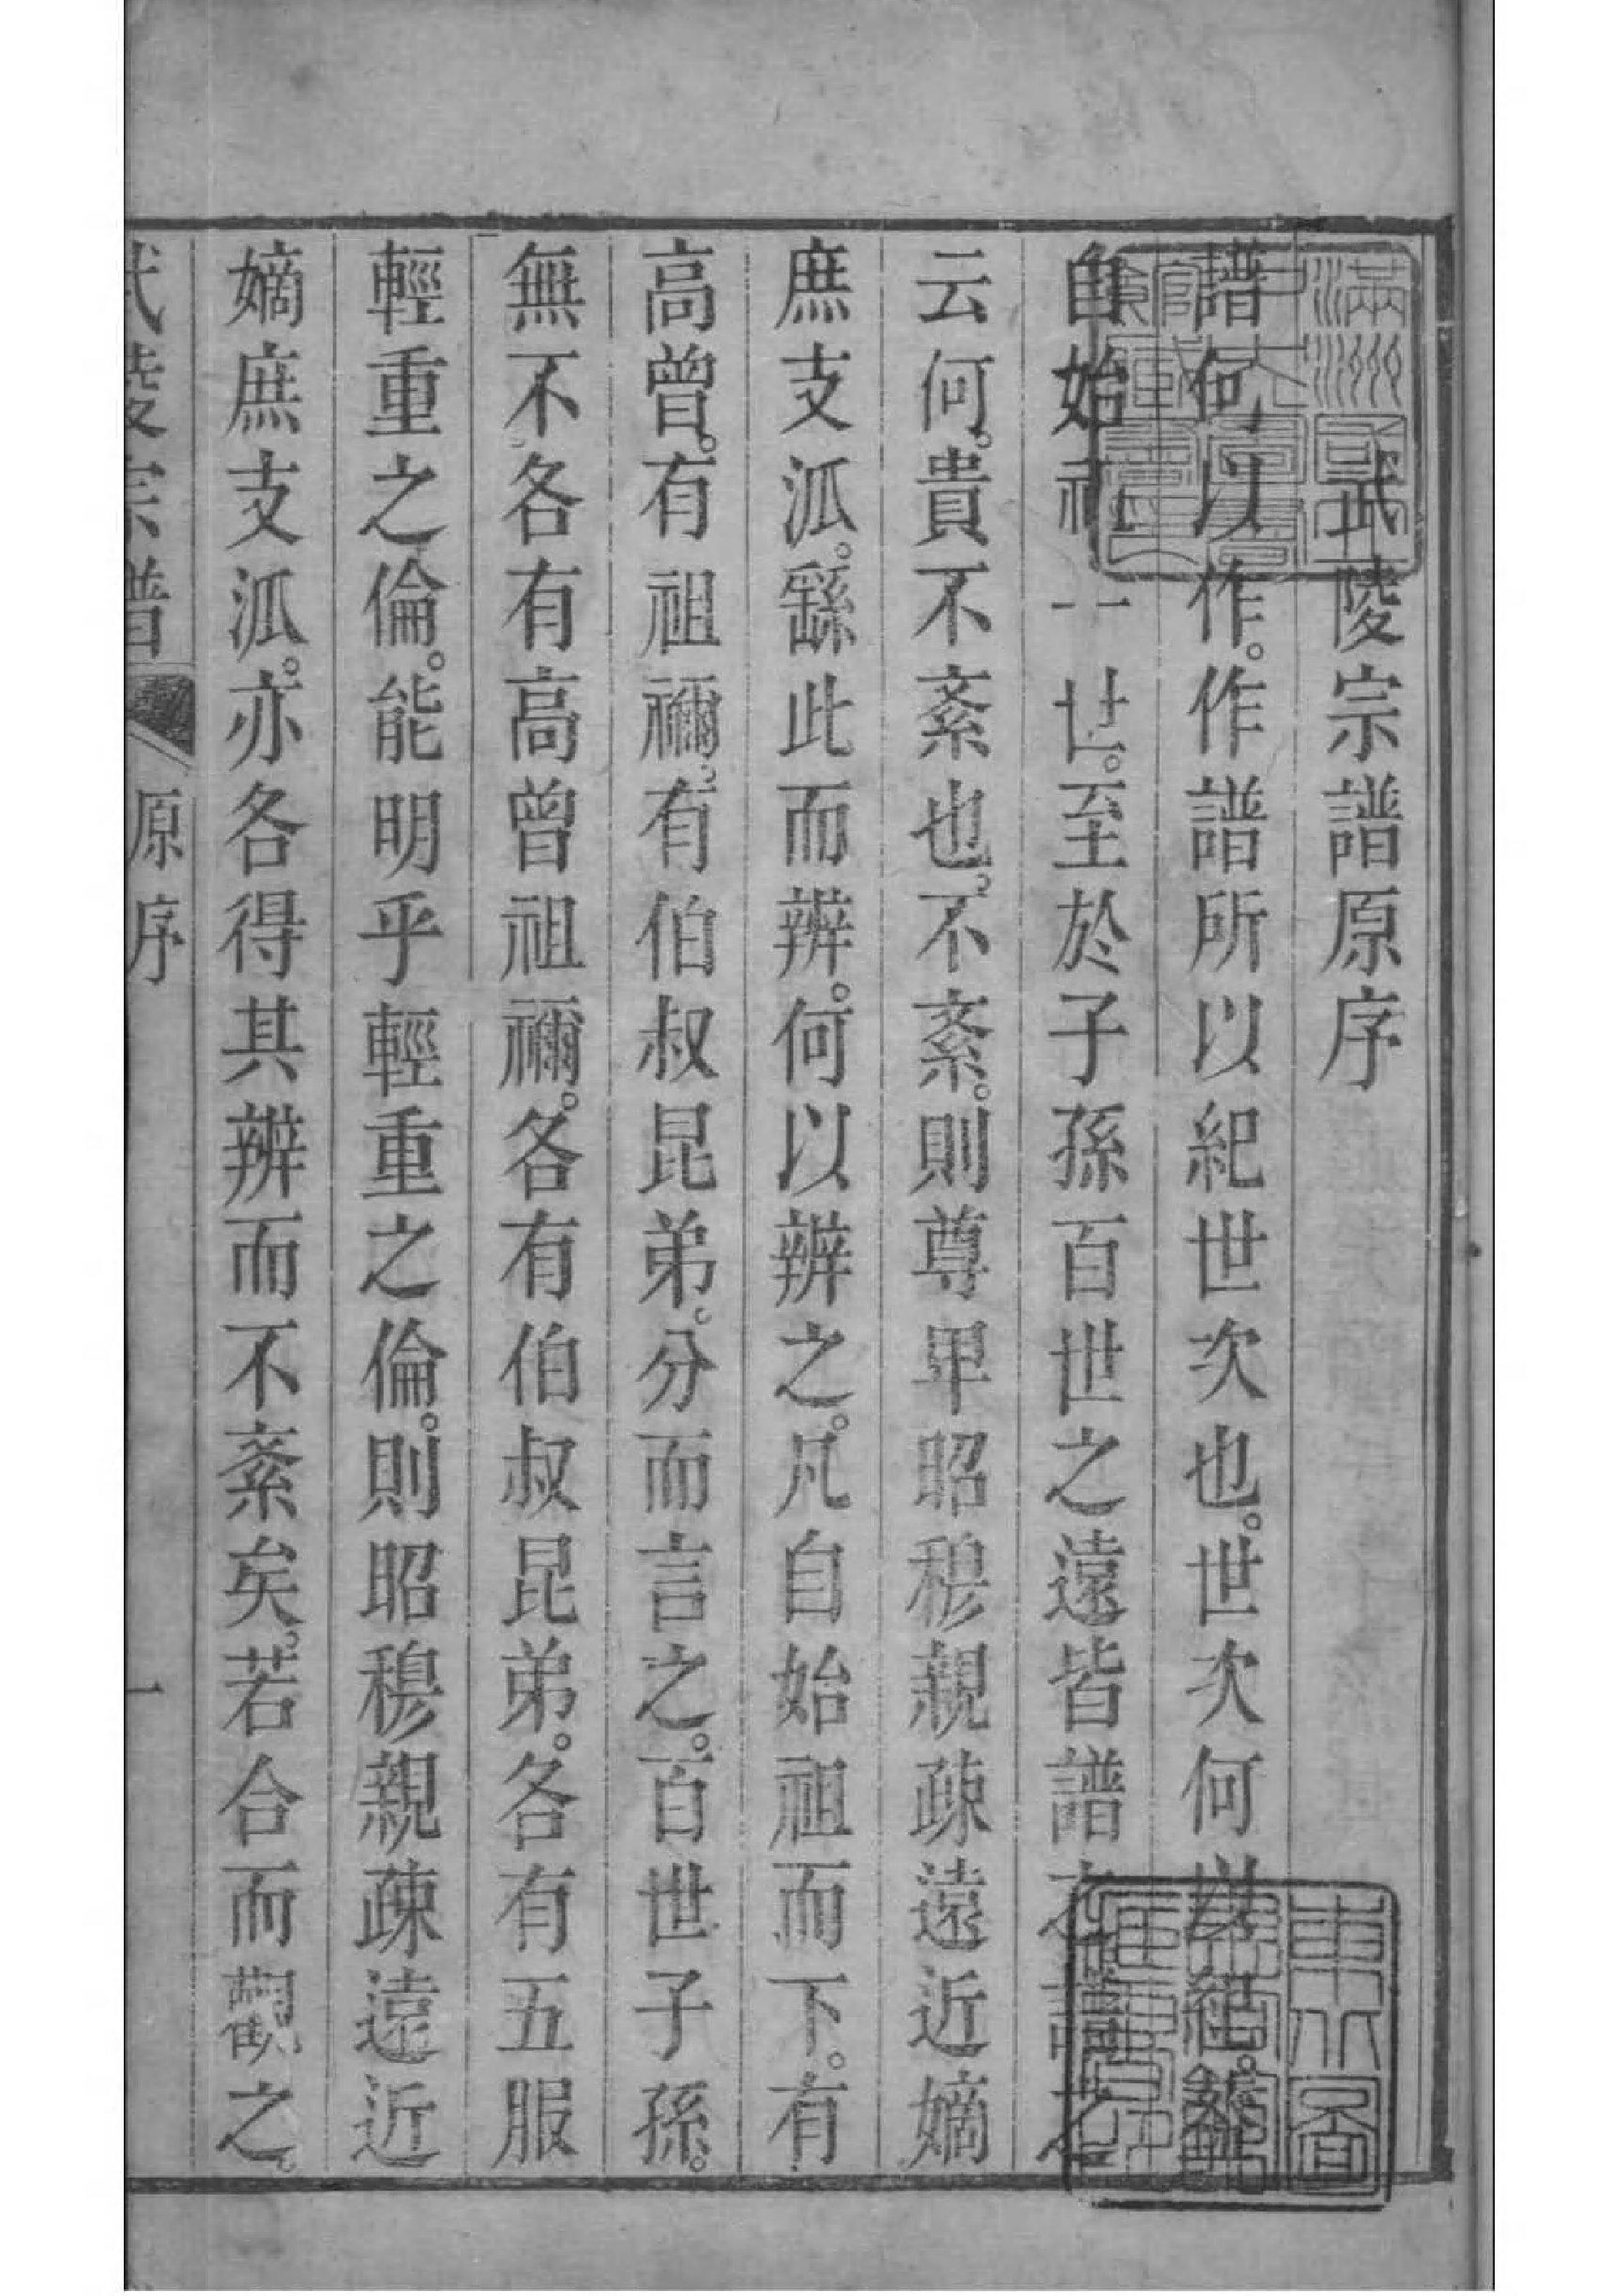 武陵宗譜原序
譜何以作。作譜所以紀世次也。世次何以紀。繇
自始祖一世。至於子孫百世之遠皆譜之譜之
云何。貴不紊也。不紊。則尊卑昭穆親疎遠近嫡
庶支泒。繇此而辨。何以辨之。凡自始祖而下。有
高曾。有祖禰。有伯叔昆弟。分而言之。百世子孫。
無不各有高曾祖禰。各有伯叔昆弟。各有五服
輕重之倫。能明乎輕重之倫。則昭穆親疎遠近
嫡庶支泒。亦各得其辨而不紊矣。若合而觀之。
武陵宗譜 原序 一